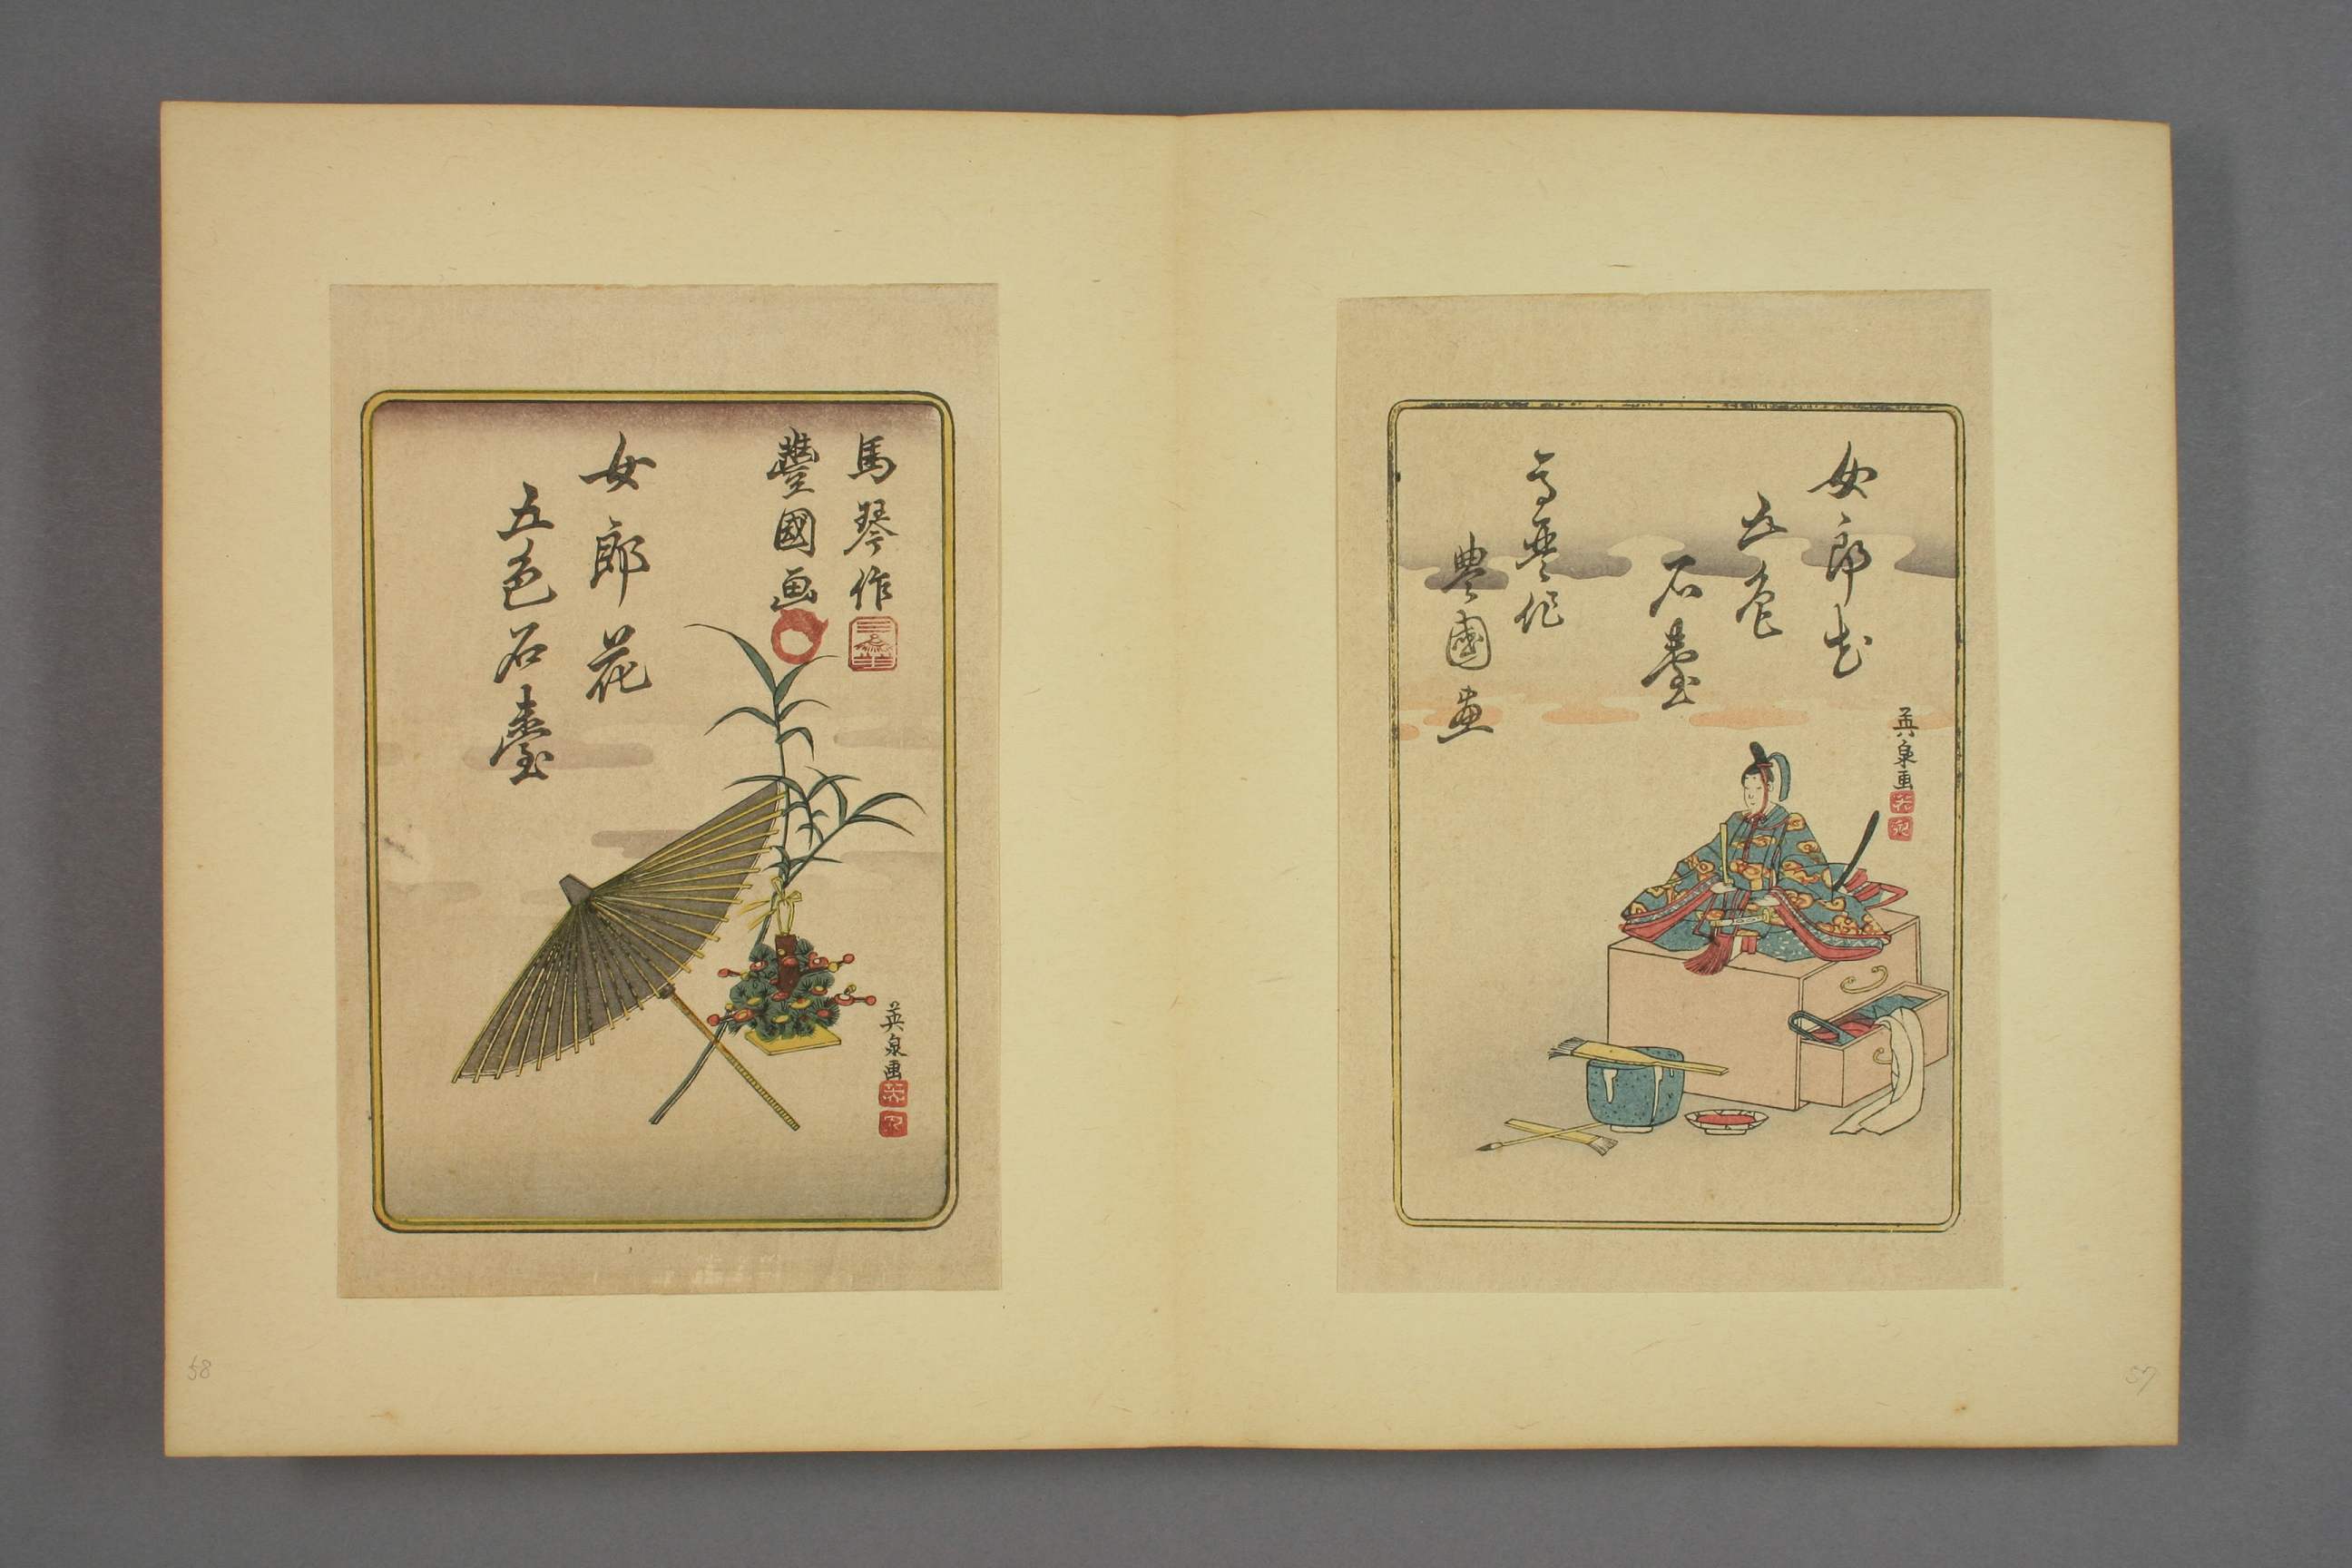 女郎花
五色
石臺
馬琴作
豊國画
英泉画
馬琴作
豐國画
女郎花
五色石臺
英泉画
57
58